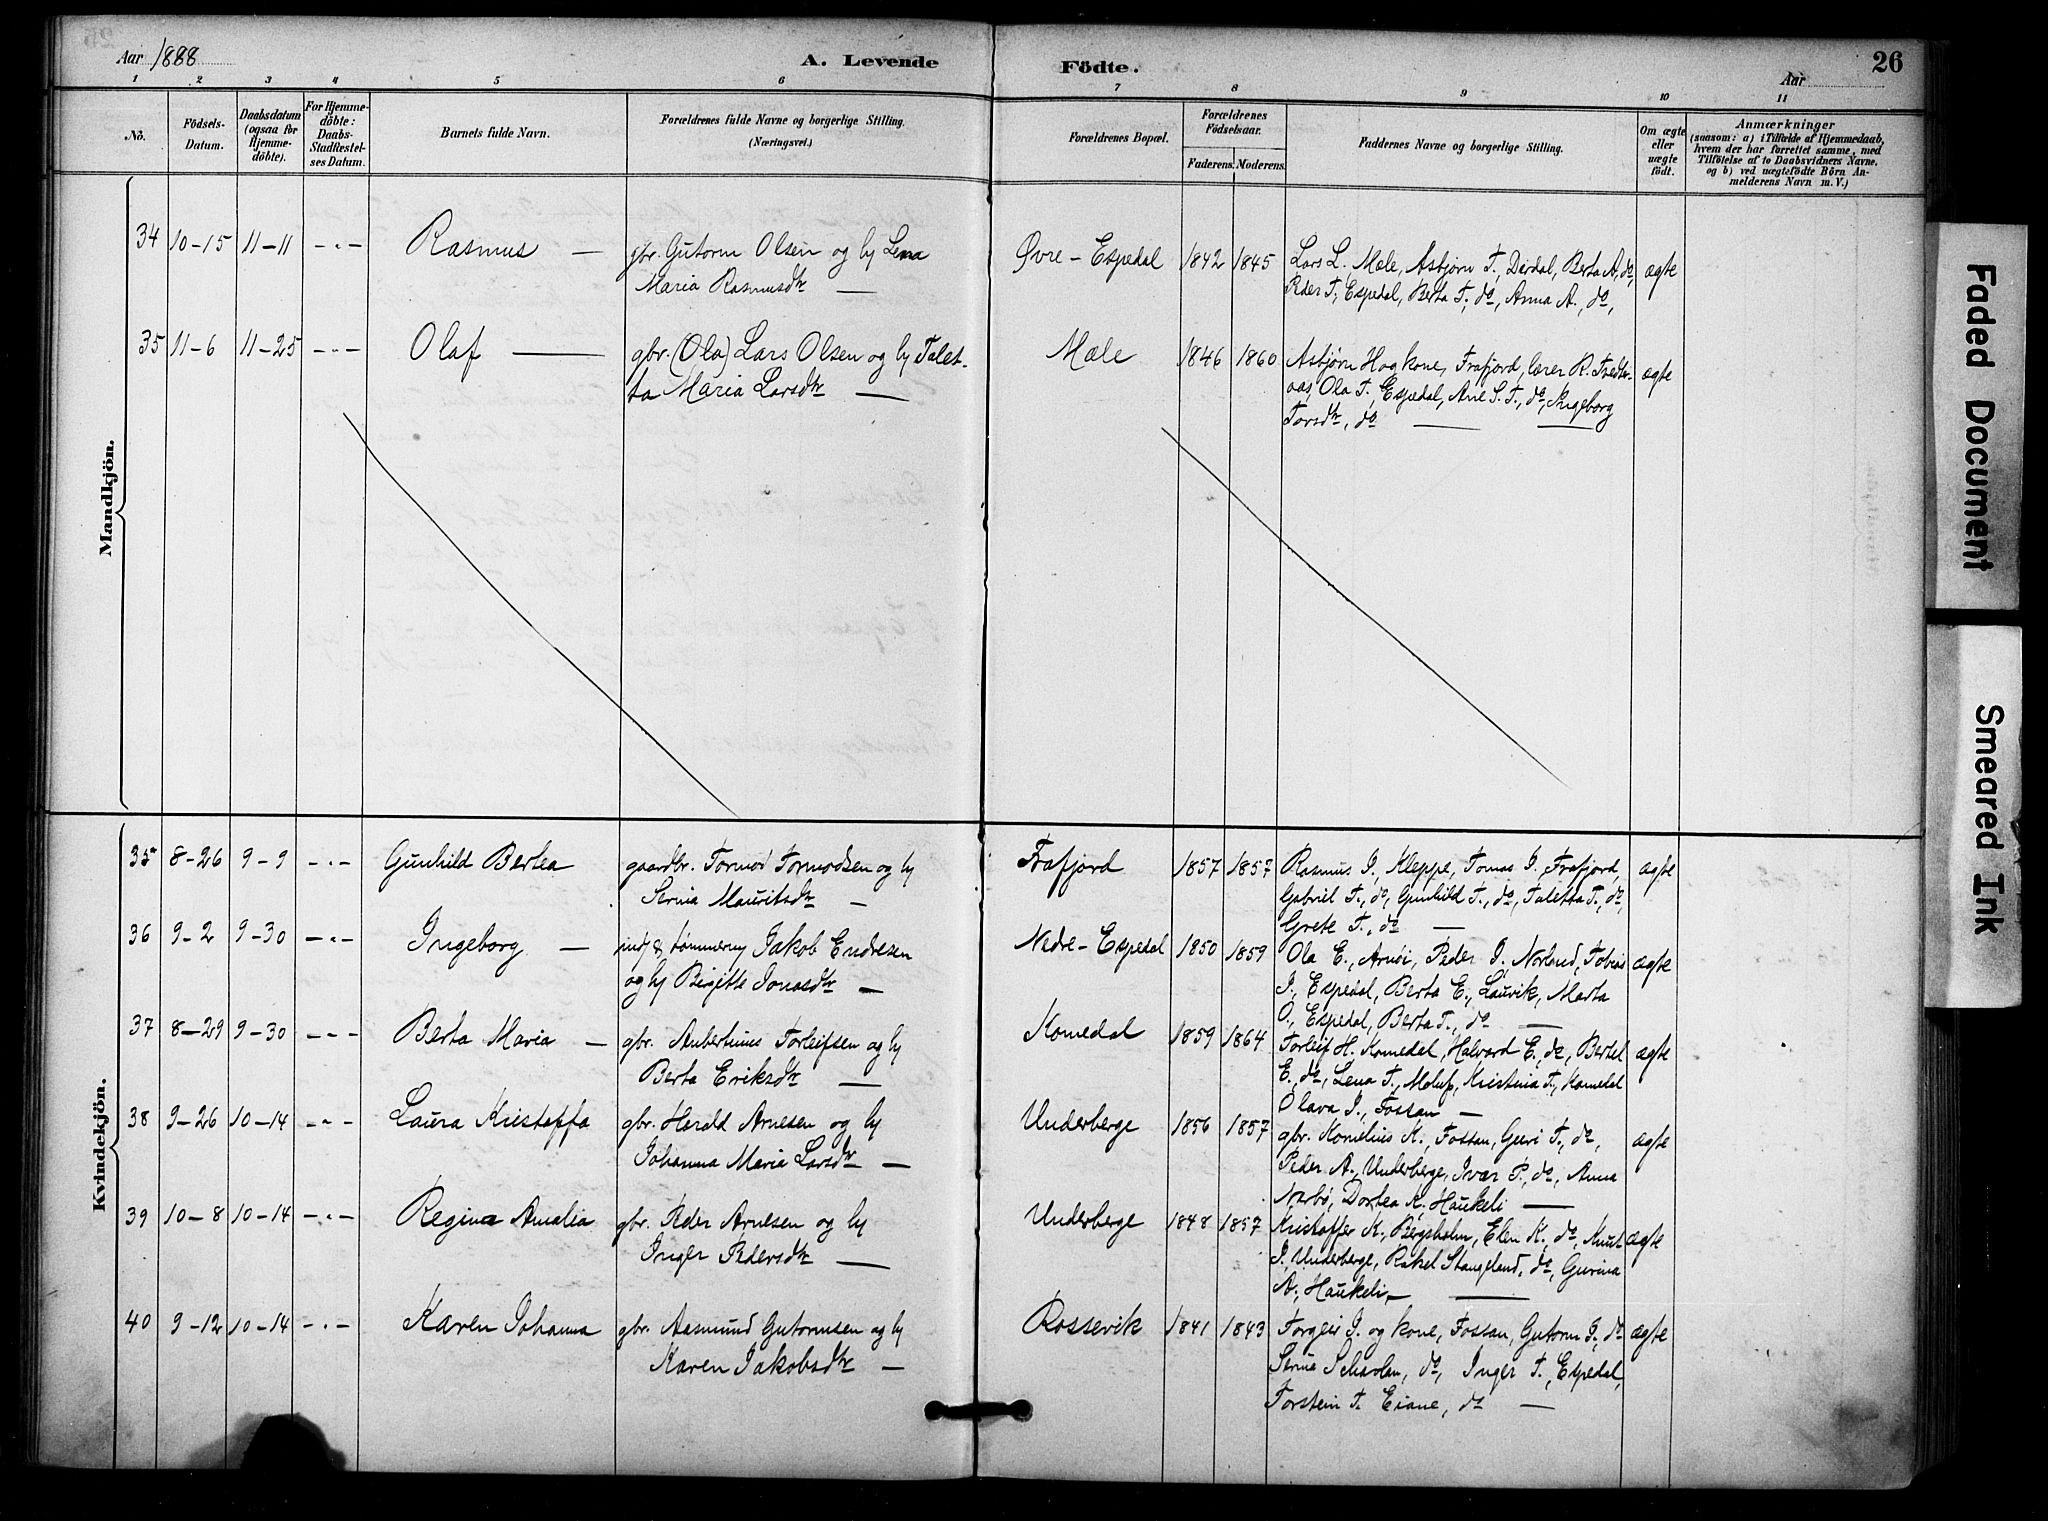 Aar 1888
A. Levende Födte.
Aar
26
1 2 3 4 5 6 7 8 9 10 11
Nö.
Födsels-Datum.
Daabsdatum (ogsaa for Hjemme-döbte).
For Hjemme-döbte: Daabs-Stadfæstel-ses Datum.
Barnets fulde Navn.
Forældrenes fulde Navne og borgerlige Stilling.
(Næringsvei.)
Forældrenes Bopæl.
Forældrenes Födselsaar.
Faderens. Moderens.
Faddernes Navne og borgerlige Stilling.
Om ægte eller uægte födt.
Anmærkninger
(saasom: a) i Tilfælde af Hjemmedaab, hvem der har forrettet samme, med Tilföielse af to Daabsvidners Navne, og b) ved uægtefödte Börn An-melderens Navn m. V.)
Mandkjön.
34 10-15 11-11 -"- Rasmus — gbr. Gutorm Olsen og hy Lena Øvre-Espedal 1842 1845 Lars L. Mæle, Asbjørn T., Dirdal, Berta A., do, ægte
Maria Rasmusdtr — Peder T., Espedal, Berta T., do, Anna A., do,
35 11-6 11-25 -"- Olaf — gbr. (Ola) Lars Olsen og hy Talet- Mæle 1846 1860 Asbjørn H og kone, Frafjord, lærer R. Tvedter- ægte
ta Maria Larsdtr — aas, Ola T. Espedal, Ane S. T., do, Ingeborg
Torsdtr, do —
Kvindekjön.
35 8-26 9-9 -"- Gunhild Bertea gaardbr. Tormod Tormodsen og hy Frafjord 1857 1857 Rasmus I., Kleppe, Tomas I. Frafjord, ægte
Serina Mauritsdtr — Gabriel T., do, Gunhild T., do, Taletta T., do,
Grete T., do —
36 9-2 9-30 -"- Ingeborg — tømmerm Jakob Endresen Nedre-Espedal 1850 1859 Ola E., Arnöi, Peder I., Norland, Tobias ægte
og hy Birgitte Jonasdtr — I., Espedal, Berta E., Lauvik, Marta
O., Espedal, Berta T., do —
37 8-29 9-30 -"- Berta Maria — gbr. Anbertinus Torleifsen og hy Komedal 1859 1864 Torleif H. Komedal, Halvard E., do, Bertel ægte
Berta Eriksdtr — E., do, Lena T., Molup, Kristina T., Komedal
Olava I., Fossan —
38 9-26 10-14 -"- Laura Kristoffa gbr. Harald Arnesen og hy Underberge 1856 1857 gbr. Kornelius K., Fossan, Guri T., do, ægte
Johanna Maria Larsdtr — Peder A., Underberge, Ivar P., do, Anna
Narbø, Dortea K., Haukeli —
39 10-8 10-14 -"- Regina Amalia gbr. Peder Arnesen og hy Underberge 1848 1857 Kristoffer K., Bergsholm, Elen K., do, Knut ægte
Inger Pedersdtr — I., Underberge, Rakel Stangeland, do, Gurina
A., Haukeli, —
40 9-12 10-14 -"- Karen Johanna gbr. Aasmund Gutormsen og hy Rossevik 1841 1843 Torgeir I. og kone, Fossan, Gutorm I., do ægte
Karen Jakobsdtr — Serina do, Inger T., Espedal,
Torstein T. Eiane, do —
Faded Document
Smeared Ink